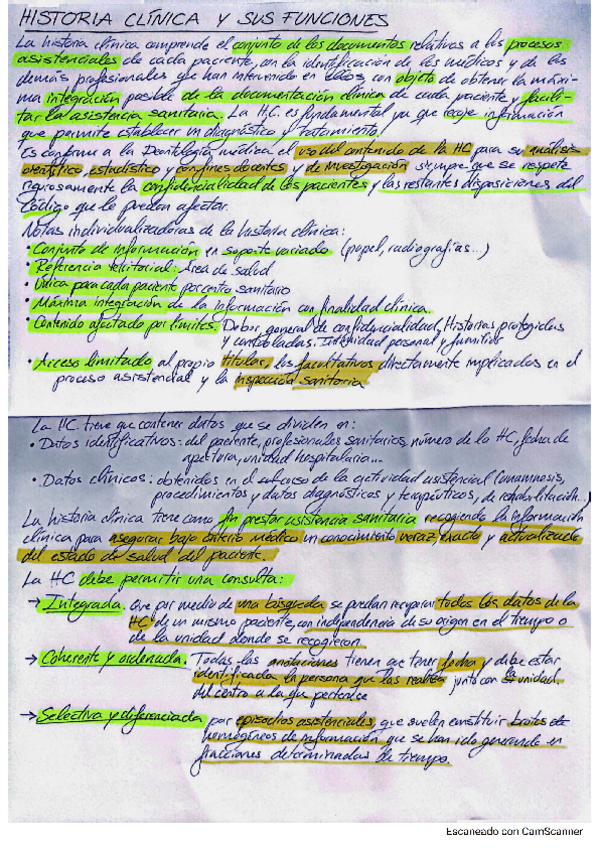 HISTORIA CLÍNICA Y SUS FUNCIONES
La historia clínica comprende el conjunto de los documentos relativos a los procesos
asistenciales de cada paciente, con la identificación de los médicos y de los
demás profesionales que han intervenido en ellos, con objeto de obtener la máxi-
ma integración posible de la documentación clínica de cada paciente y facili-
tar la asistencia sanitaria. La H.C. es fundamental ya que recoje información
que permite establecer un diagnóstico y tratamiento.
Es conforme a la Deontología médica el uso del contenido de la HC para su análisis
científico, estadístico y con fines docentes y de investigación siempre que se respete
rigurosamente la confidencialidad de los pacientes y las restantes disposiciones del
Código que lo puedan afectar.
Notas individualizadoras de la historia clínica:
• Conjunto de información en soporte variado (papel, radiografías...)
• Referencia territorial: Área de salud
• Única para cada paciente por centro sanitario
• Máxima integración de la información con finalidad clínica.
• Contenido afectado por límites. Deber general de confidencialidad, Historias protegidas
y controladas. Intimidad personal y familiar
• Acceso limitado al propio titular, los facultativos directamente implicados en el
proceso asistencial y la inspección sanitaria
La HC tiene que contener datos que se dividen en:
• Datos identificativos: del paciente, profesionales sanitarios, número de la HC, fecha de
apertura, unidad hospitalaria...
• Datos clínicos: obtenidos en el curso de la actividad asistencial (anamnosis,
procedimientos y datos diagnósticos y terapéuticos, de rehabilitación...)
La historia clínica tiene como fin prestar asistencia sanitaria recogiendo la información
clínica para asegurar bajo criterio médico un conocimiento veraz, exacto y actualizado
del estado de salud del paciente.
La HC debe permitir una consulta:
→ Integrada. Que por medio de una búsqueda se puedan recuperar todos los datos de la
HC de un mismo paciente, con independencia de su origen en el tiempo o
de la unidad donde se recogieron.
→ Coherente y ordenada. Todas las anotaciones tienen que tener fecha y debe estar
identificada la persona que las realiza junto con la unidad
del centro a la que pertenece
→ Selectiva y diferenciada por episodios asistenciales que suelen constituir
homogéneos de información que se han ido generando en
fracciones determinadas de tiempo.
Escaneado con CamScanner